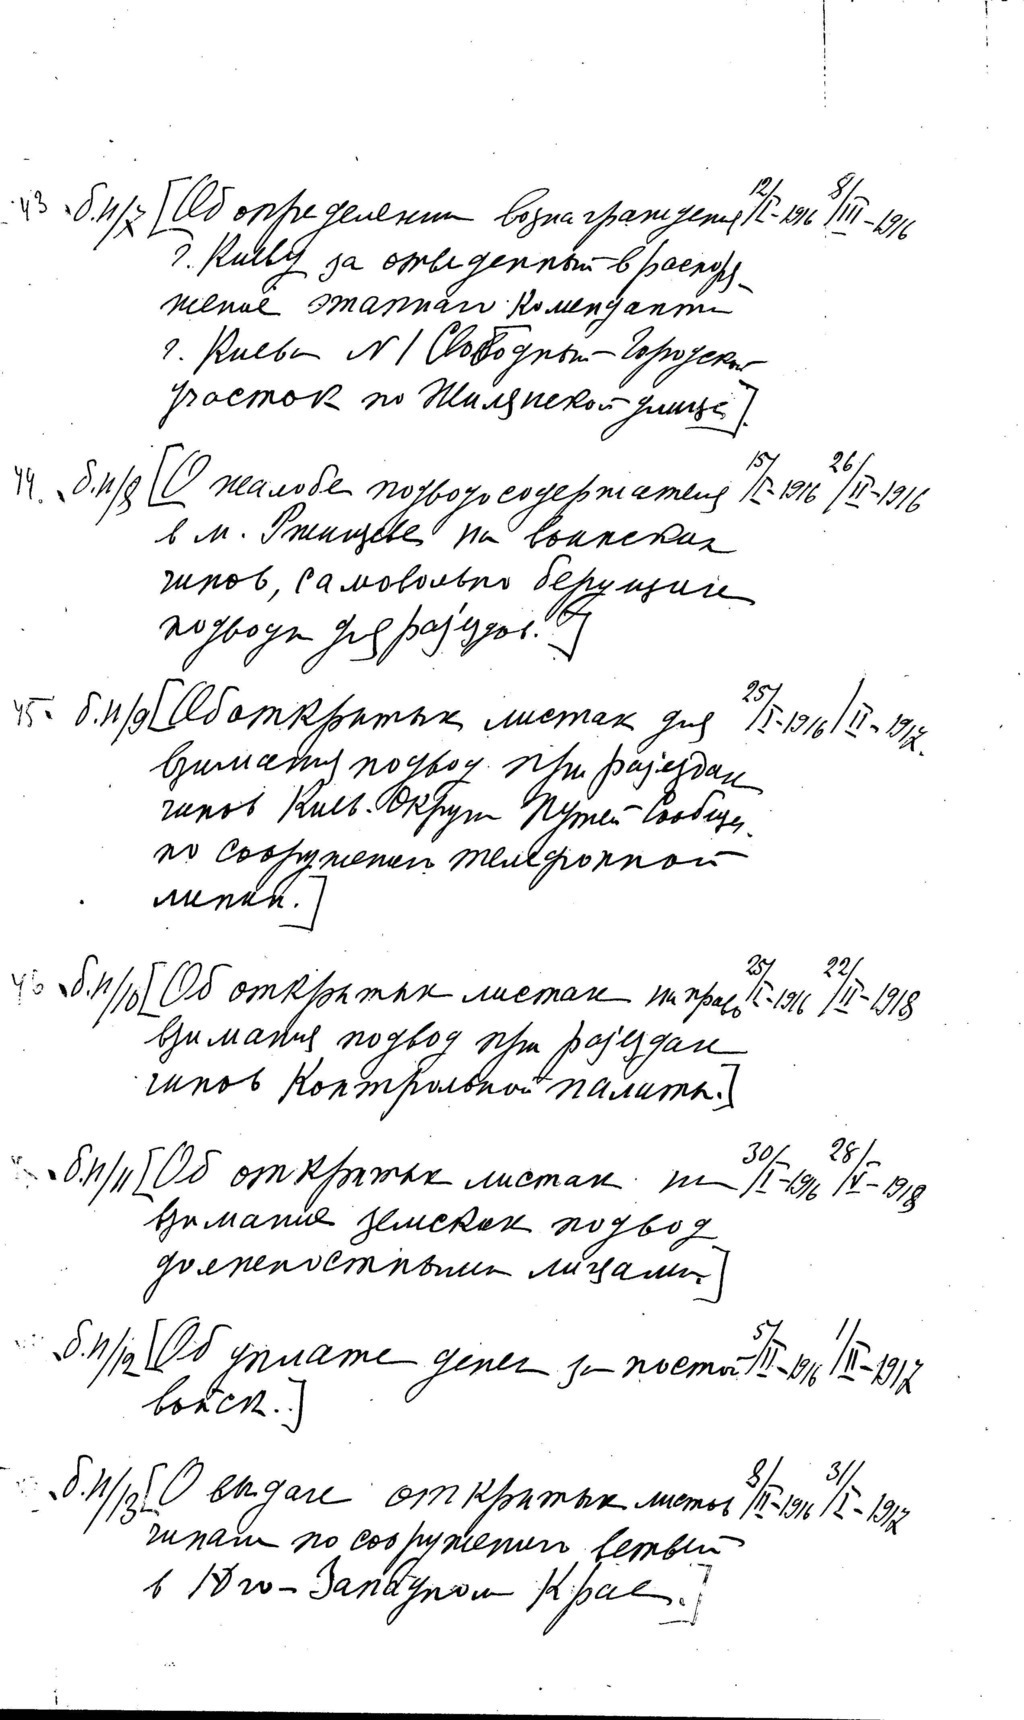 43. б.н/7 [Об определении вознаграждения 12/I-1916 8/III-1916
г. Киеву за отведенный в распоря-
жение этапнаго Коменданта
г. Киева N 1 Свободный Городской
участок по Жилянской улице].
44. б.н/8 [О жалобе подводосодержателя 15/I-1916 26/II-1916
в м. Ржищеве на воинских
чинов, самовольно берущие
подводы для раз'ездов.]
45. б.н/9 [Об открытых листах для 25/I-1916 1/II-1917.
взимания подвод при раз'ездах
чинов Киев. Округа Путей Сообщен.
по сооружению телефонной
линии.]
46. б.н/10 [Об открытых листах на право 25/I-1916 22/II-1918
взимания подвод при раз'ездах
чинов Контрольной палаты.]
б.н/11 [Об открытых листах на 30/I-1916 28/V-1918
взимание земских подвод
должностными лицами.]
б.н/12 [Об уплате денег за постой 5/II-1916 1/II-1917
войск.]
б.н/13 [О выдаче открытых листов 8/II-1916 31/I-1917
чинам по сооружению ветвей
в Юго-Западном Крае.]